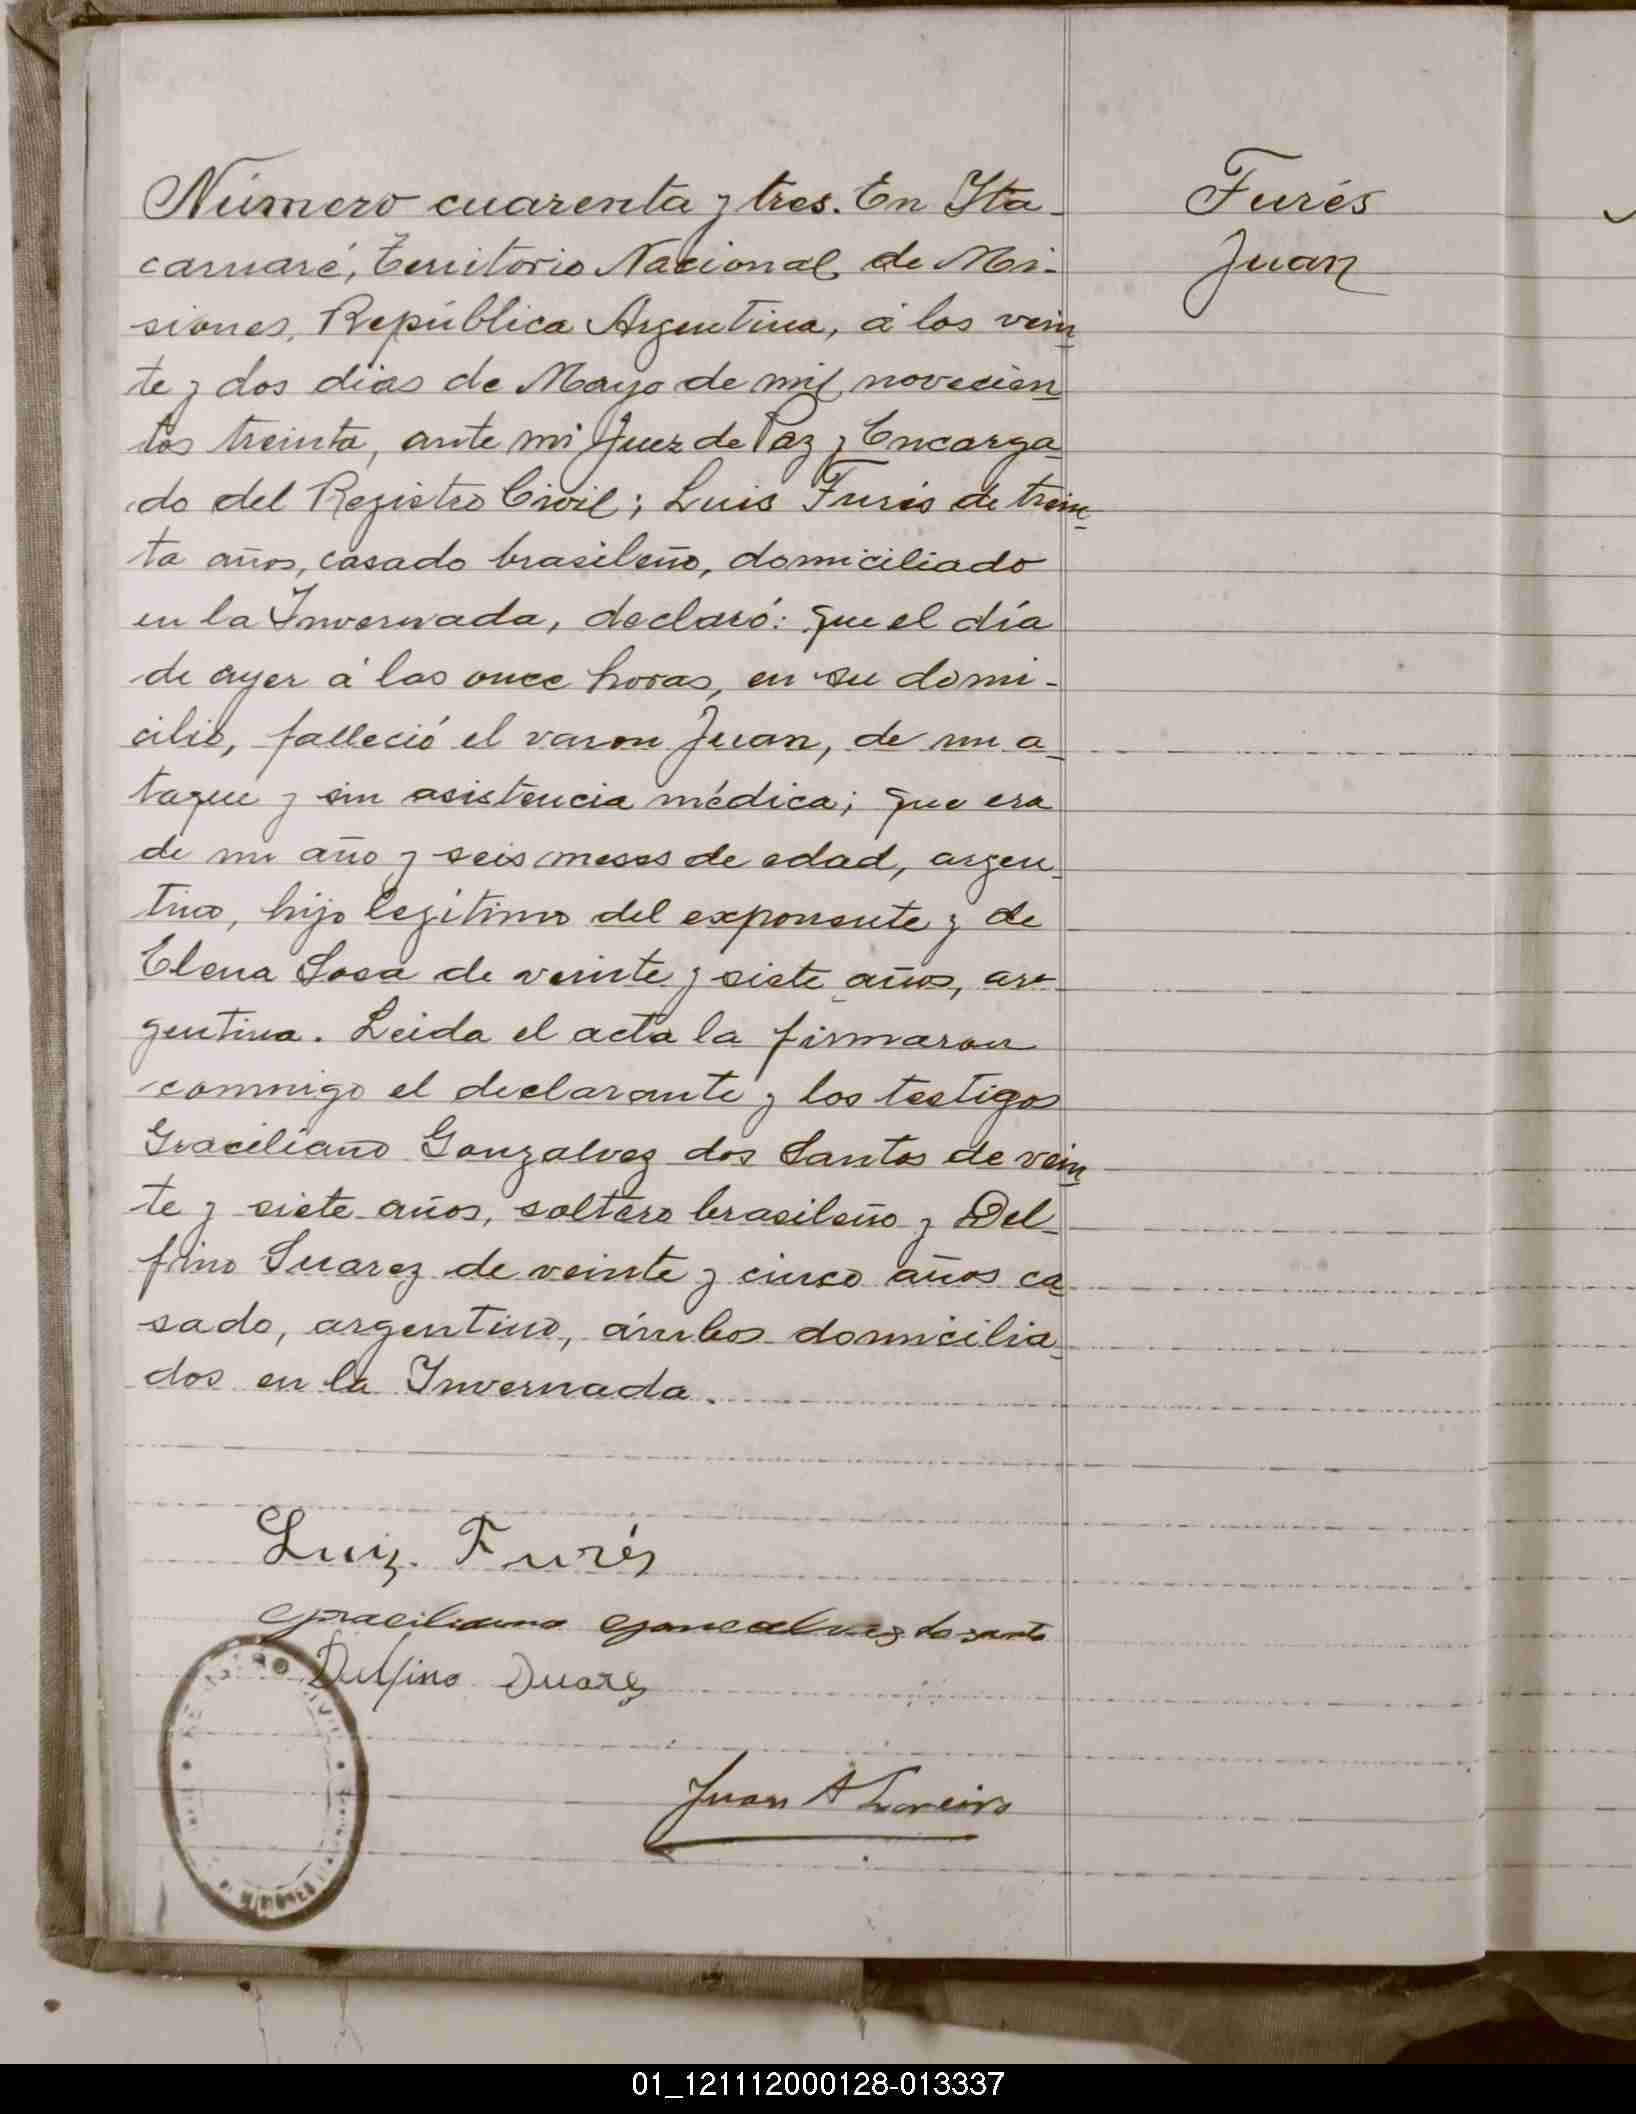 Número cuarenta y tres. En Ita-
caruaré, Territorio Nacional de Mi-
siones, República Argentina, á los vein
te y dos dias de Mayo de mil novecien
tos treinta, ante mi Juez de Paz y Encarga
do del Registro Civil; Luis Furés de trein
ta años, casado brasileño, domiciliado
en la Invernada, declaró: que el día
de ayer á las once horas, en su domi-
cilio, falleció el varon Juan, de un a
taque y sin asistencia médica; que era
de un año y seis meses de edad, argen
tino, hijo legítimo del exponente y de
Elena Sosa de veinte y siete años, ar-
gentina. Leida el acta la firmaron
conmigo el declarante y los testigos
Graciliano Gonzalvez dos Santos de vein
te y siete años, soltero brasileño y Del
fino Suarez de veinte y cinco años ca
sado, argentino, ámbos domicilia
dos en la Invernada.
Furés
Juan
Luiz. Furés
Graciliano Goncalvez do santo
Delfino Duarez
Juan A
01_121112000128-013337